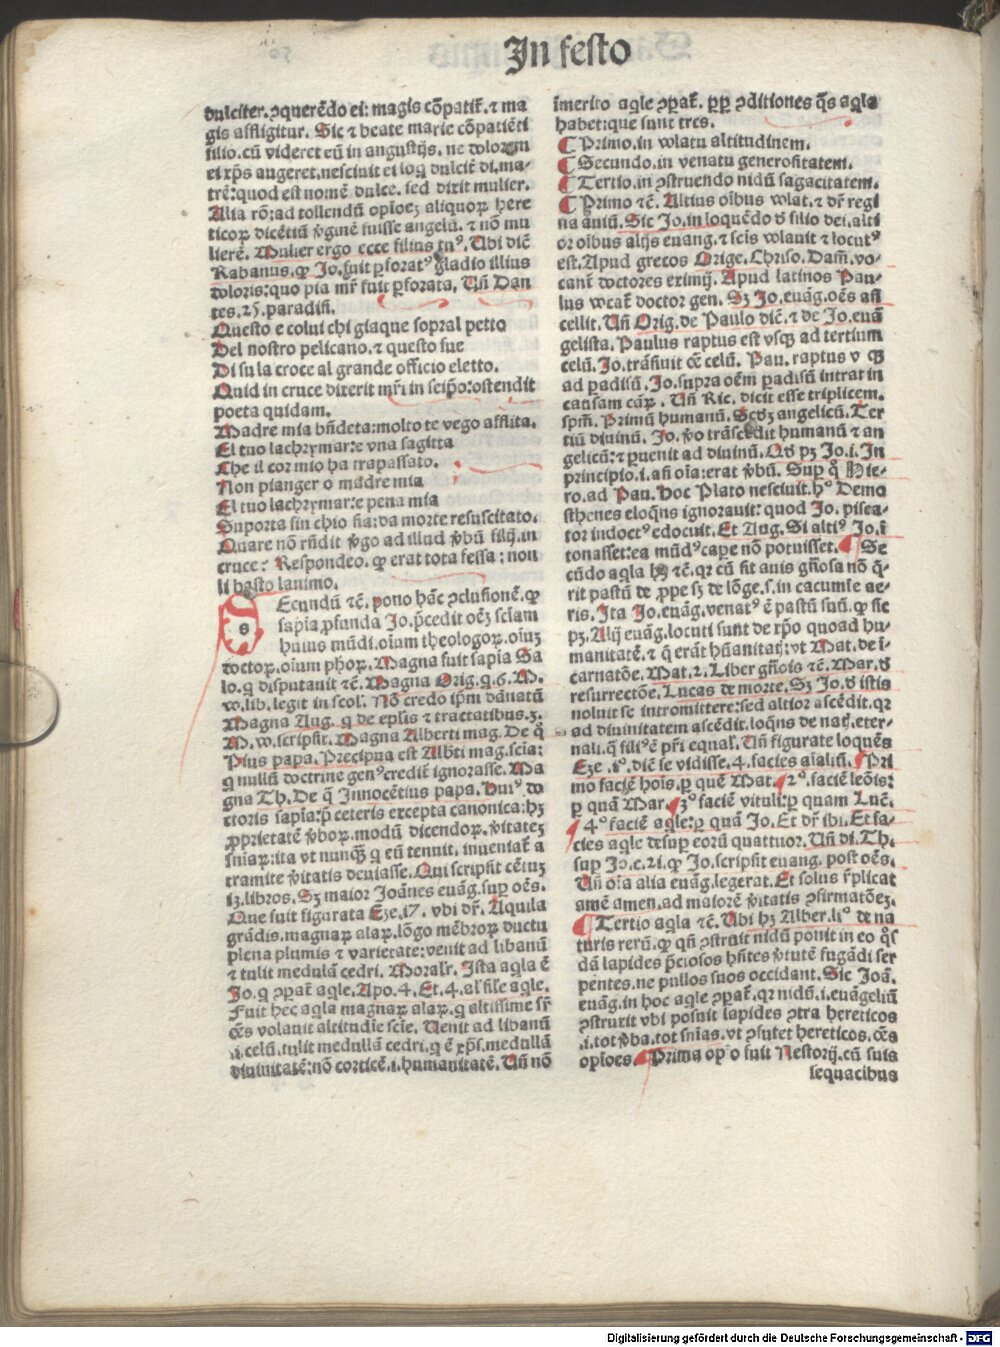 In festo
dulciter. ꝯquerēdo ei: magis cōpatit̄. ⁊ ma
gis affligitur. Sic ⁊ beate marie cōpatiēti
filio. cū videret eū in angustijs. ne dolorem
ei xp̄s augeret. nesciuit ei loq̄ dulcit̄ di. ma-
trē: quod est nomē dulce. sed dixit mulier.
Alia rō: ad tollendū opīoeȝ aliquoꝝ here
ticoꝝ dicētiū v̄ginē fuisse angelū. ⁊ nō mu
lierē. Mulier ergo ecce filius tuꝰ. Ubi dic̄
Rabanus. ꝙ Jo. fuit ꝑforatꝰ gladio illius
doloris: quo pia mr̄ fuit ꝑforata. Un̄ Dan
tes. 25. paradisi.
Questo e colui chi giaque sopral petto
Del nostro pelicano. ⁊ questo fue
Di su la croce al grande officio eletto.
Quid in cruce dixerit mr̄i in seip̄o: ostendit
poeta quidam.
Madre mia bn̄deta: molto te vego afflita.
El tuo lachrymar: e vna sagitta
Che il cor mio ha trapassato.
Non pianger o madre mia
El tuo lachrymar: e pena mia
Suporta sin chio sia: da morte resuscitato.
Quare nō rn̄dit v̄go ad illud v̄bū filij. in
cruce? Respondeo. ꝙ erat tota fessa: non
li basto lanimo.
Secundū ⁊c̄. pono hāc ꝯclusionē. ꝙ
sapīa ꝓfunda Jo. p̄cedit oēȝ scīam
huius mūdi. oīum theologoꝝ. oīuȝ
doctoꝝ. oīum phoꝝ. Magna fuit sapīa Sa
lo. q̄ disputauit ⁊c̄. Magna Orig. q. 6. M.
vo. lib. legit in scol. Nō credo ip̄m dānatū
Magna Aug. q̄ de ep̄lis ⁊ tractatibus. 3.
M. vo. scripsit. Magna Alberti mag. De q̄
Pius papa. Precipua est Alb̄ti mag. scīa:
q̄ nullū doctrine genꝰ credit̄ ignorasse. Ma
gna Th. De q̄ Innocētius papa. Huiꝰ do
ctoris sapīa: p̄ ceteris excepta canonica: hȝ
ꝓprietatē v̄boꝝ. modū dicendoꝝ. v̄itateȝ
sniaꝝ: ita vt nunꝙ̄ q̄ eū tenuit. inueniat̄ a
tramite v̄itatis deuiasse. Qui scripsit cētuȝ
13. libros. Sȝ maior Joānes euāg. suꝑ oēs.
Que fuit figurata Eze. 17. vbi dr̄. Aquila
grādis. magnaꝝ alaꝝ. lōgo mēbroꝝ ductu
plena plumis ⁊ varietate: venit ad libanū
⁊ tulit medulā cedri. Moralr̄. Ista aq̄la ē
Jo. q̄ ꝯꝑat̄ aq̄le. Apo. 4. Et. 4. aīal sīle aq̄le.
Fuit hec aq̄la magnaꝝ alaꝝ. q̄ altissime sr̄
oēs volauit altitudīe scīe. Uenit ad libanū
.i. celū. tulit medullā cedri. q̄ ē xp̄s. medullā
diuinitatē: nō corticē. i. humanitatē. Un̄ nō
īmerito aq̄le ꝯꝑat̄. ꝓp ꝯditiones q̄s aq̄la
habet: que sunt tres.
¶ Primo. in volatu altitudinem.
¶ Secundo. in venatu generositatem.
¶ Tertio. in ꝯstruendo nidū sagacitatem.
¶ Primo ⁊c̄. Altius oībus volat. ⁊ dr̄ regi
na auiū. Sic Jo. in loquēdo d̄ filio dei. alti
or oībus alijs euang. ⁊ scīs volauit ⁊ locutꝰ
est. Apud grecos Orige. Chriso. Dam̄. vo-
cant̄ doctores eximij. Apud latinos Pau-
lus vocat̄ doctor gen. Sȝ Jo. euāg. oēs ās
cellit. Un̄ Orig. de Paulo dic̄. ⁊ de Jo. euā
gelista. Paulus raptus est vsqȝ ad tertium
celū. Jo. trāsiuit oē celū. Pau. raptus v qȝ
ad padisū. Jo. supra oēm padisū intrat in
causam caꝝ. Un̄ Ric. dicit esse triplicem.
spm̄. Primū humanū. Scdȝ angelicū. Ter
tiū diuinū. Jo. v̄o trāscēdit humanū ⁊ an
gelicū: ⁊ ꝑuenit ad diuinū. Qd̓ pȝ Jo. i. In
principio. i. añ oīa: erat v̄bū. Suꝑ q̄ Hie-
ro. ad Pau. Hoc Plato nesciuit. hꝰ Demo
sthenes eloq̄ns ignorauit: quod Jo. pisca-
tor indoctꝰ edocuit. Et Aug. Si altiꝰ Jo. ī
tonasset: ea mūdꝰ caꝑe nō potuisset. ¶ Se
cūdo aq̄la hȝ ⁊c̄. qr cū sit auis gn̄osa nō q̄-
rit pastū de ꝓpe sȝ de lōge. s. in cacumīe ae-
ris. Ita Jo. euāg. venatꝰ ē pastū suū. ꝙ sic
pȝ. Alij euāg. locuti sunt de xp̄o quoad hu-
manitatē. ⁊ q̄ erāt hūanitatꝭ: vt Mat. de ī-
carnatōe. Mat. 2. Liber gn̄ois ⁊c̄. Mar. d̄
resurrectōe. Lucas de morte. Sȝ Jo. d̄ istis
noluit se intromittere: sed altior ascēdit. qr
ad diuinitatem ascēdit. loq̄ns de nat̄. eter-
nali. q̄ filiꝰ ē pr̄i equal̄. Un̄ figurate loquēs
Eze. 1º. dic̄ se vidisse. 4. facies aīaliū. ¶ Pri
mo faciē hoīs. ꝑ quē Mat. ¶ 2º. faciē leōis:
ꝑ quā Mar. ¶ 3º faciē vituli: ꝑ quam Luc̄.
¶ 4º faciē aq̄le: ꝑ quā Jo. Et dr̄ ibi. Et fa-
cies aq̄le desuꝑ eorū quattuor. Un̄ di. Th.
suꝑ Jo. c. 21. ꝙ Jo. scripsit euang. post oēs.
Un̄ oīa alia euāg. legerat. Et solus r̄plicat
amē amen. ad maiorē v̄itatis ꝯfirmatōeȝ.
¶ Tertio aq̄la ⁊c̄. Ubi hȝ Alber. liº de na
turis rerū. ꝙ qn̄ ꝯstruit nidū ponit in eo q̄s
dā lapides p̄ciosos hn̄tes v̄tutē fugādi ser
pentes. ne pullos suos occidant. Sic Joā.
euāg. in hoc aq̄le ꝯꝑat̄. qr nidū. i. euāgeliū
ꝯstruxit vbi posuit lapides ꝯtra hereticos
.i. tot v̄ba. tot snīas. vt ꝯfutet hereticos. oēs
opīoes. ¶ Prima opīo fuit Nestorij. cū suis
sequacibus
Digitalisierung gefördert durch die Deutsche Forschungsgemeinschaft - DFG